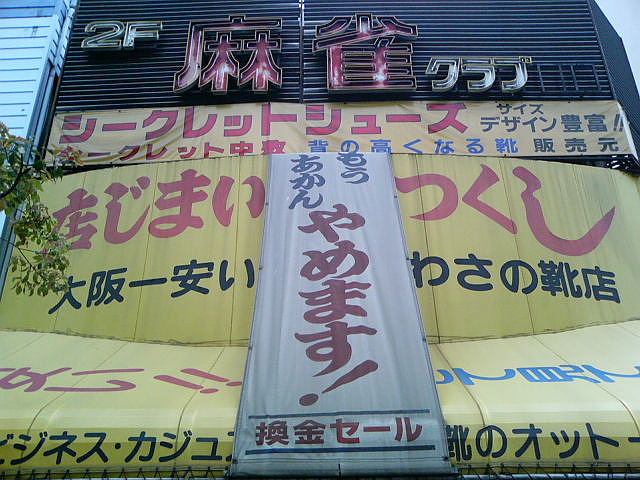 2F 麻雀 クラブ
シークレットシューズ サイズ デザイン豊富!!
シークレット中敷 背の高くなる靴 販売元
店じまい つくし
大阪一安い わさの靴店
もう
あかん
やめます!
換金セール
ビジネス・カジュ 靴のオットー